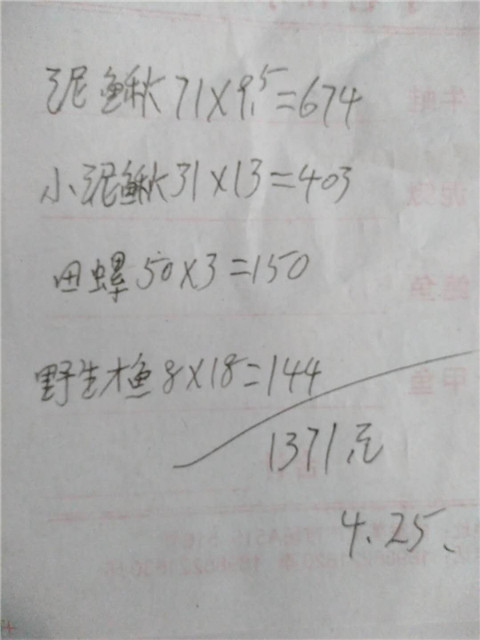 泥鳅 71×9.5=674
小泥鳅 31×13=403
田螺 50×3=150
野生才鱼 8×18=144
1371元
4.25、